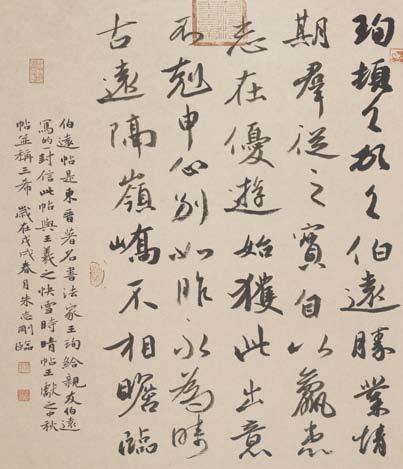 珣頓首頓首伯遠勝業情
期羣從之寶自以羸患
志在優遊始獲此出意
不剋申分別如昨永為疇
古遠隔嶺嶠不相瞻臨
伯遠帖是東晉著名書法家王珣給親友伯遠
寫的一封信此帖與王羲之快雪時晴帖王獻之中秋
帖並稱三希 歲在戊戌春月朱志剛臨